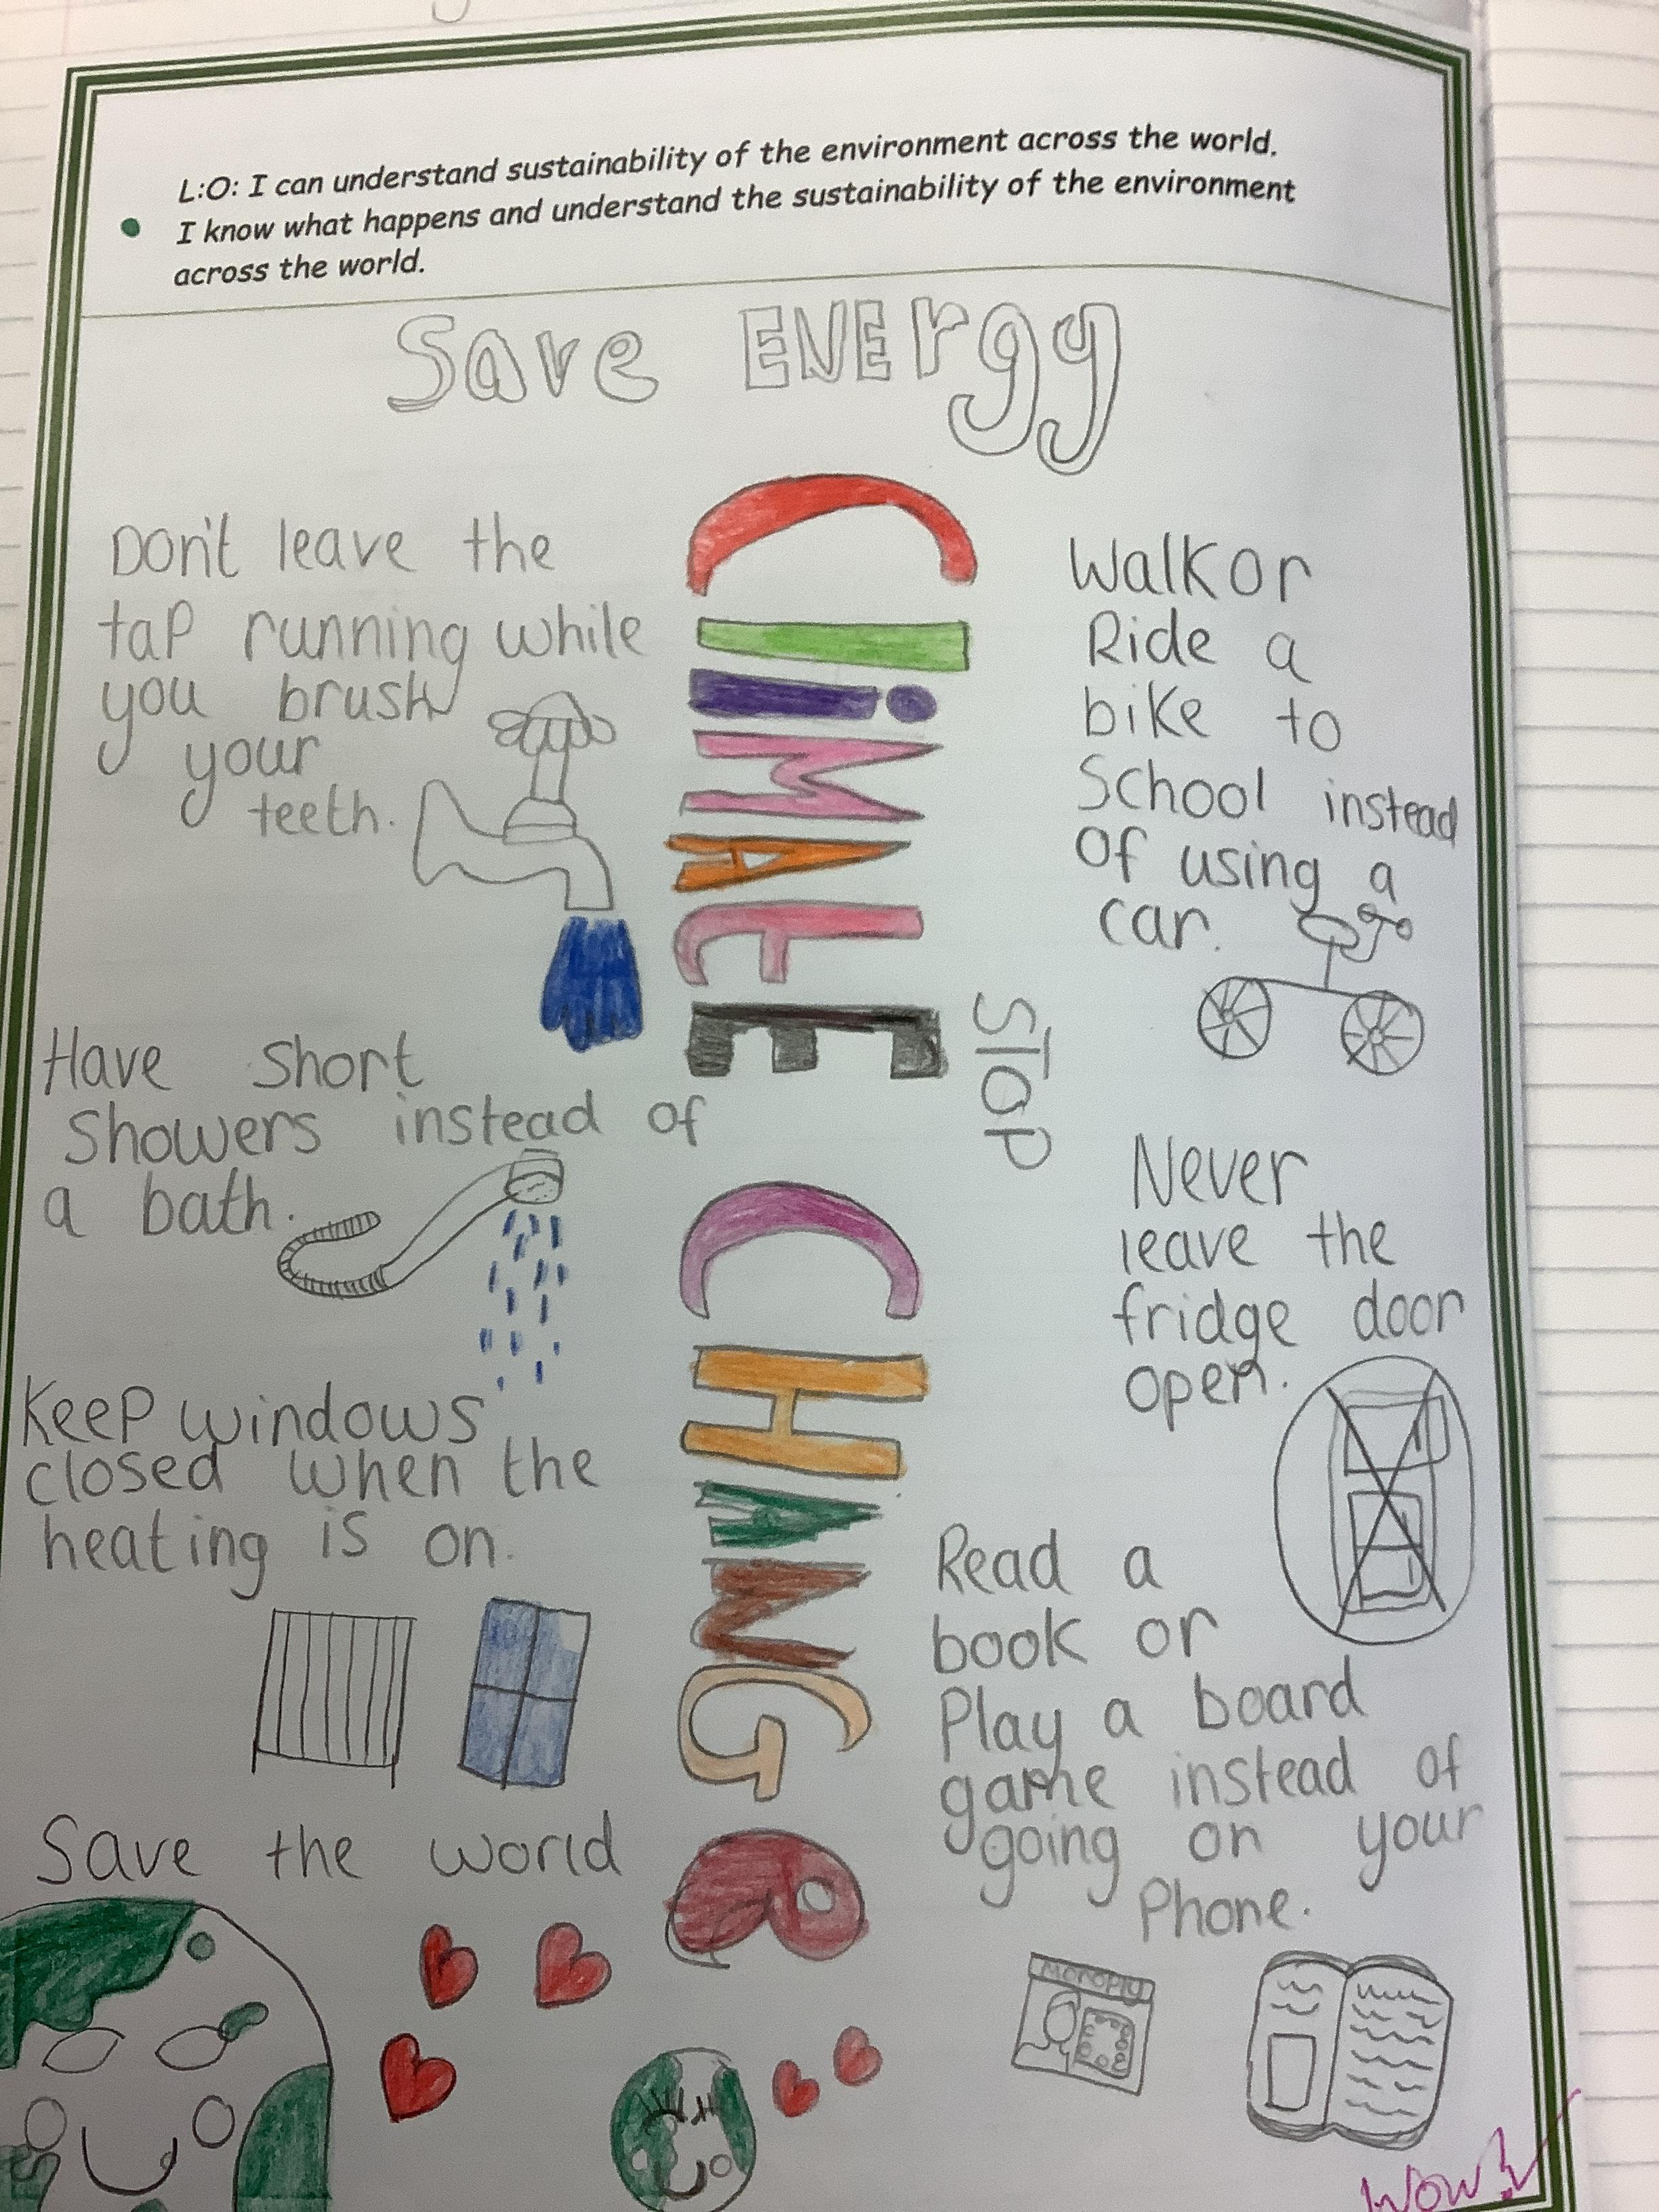 L:O: I can understand sustainability of the environment across the world.
I know what happens and understand the sustainability of the environment
across the world.
Save ENErgy
Don't leave the
tap running while
you brush
your
teeth.
Have Short
Showers instead of
a bath.
Keep windows
closed when the
heating is on.
Save the world
CliMAtE
STOP
CHANGe
Walk or
Ride a
bike to
School instead
Of using a
car.
Never
leave the
fridge door
open.
Read a
book or
Play a board
game instead of
going on your
Phone.
MONOPlY
Wow!